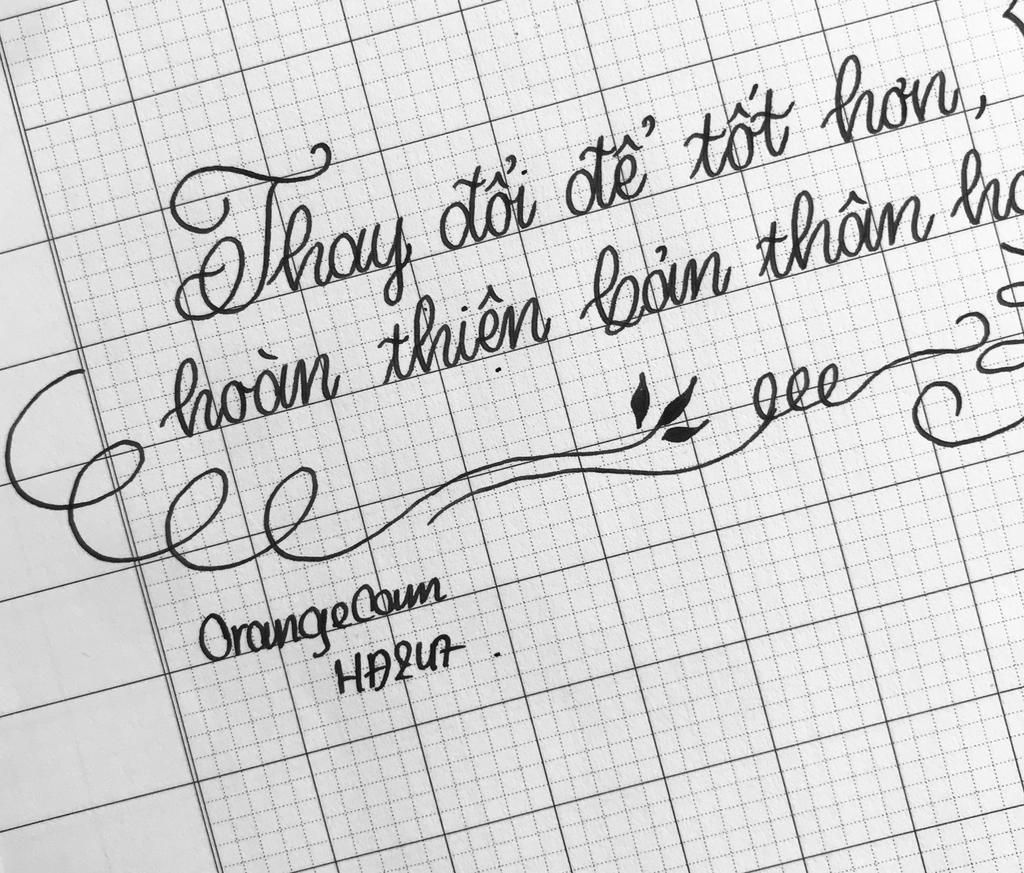 Thay đổi để tốt hơn,
hoàn thiện bản thân
OrangeCam